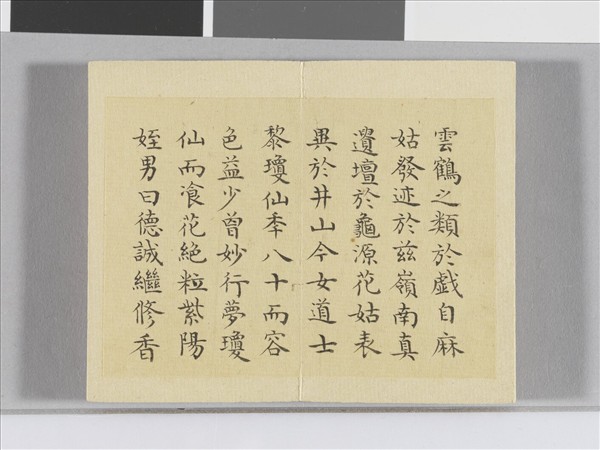 雲鶴之類於戯自麻
姑發迹於茲嶺南真
遺壇於龜源花姑表
異於井山今女道士
黎瓊仙秊八十而容
色益少曾妙行夢瓊
仙而飡花絶粒紫陽
姪男曰德誠繼修香